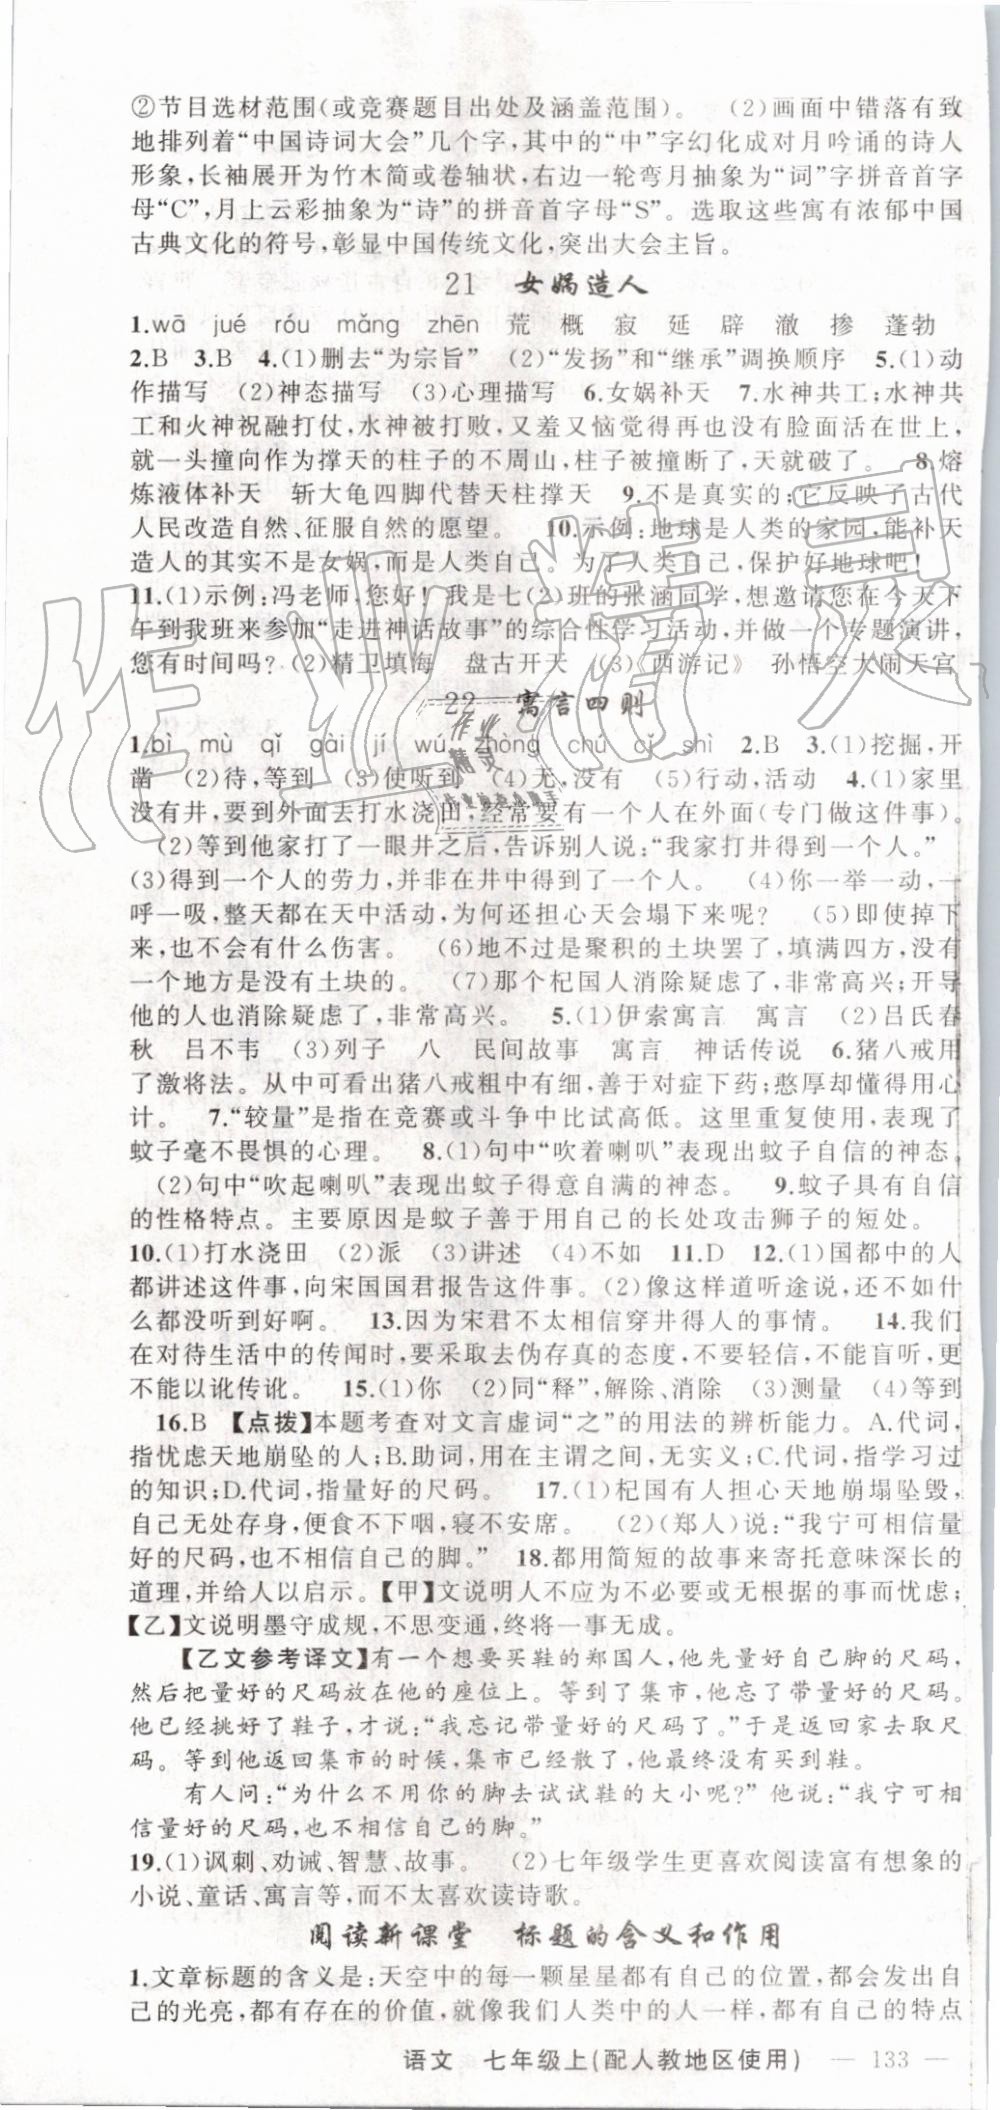 ②节目选材范围(或竞赛题目出处及涵盖范围)。 (2)画面中错落有致
地排列着“中国诗词大会”几个字,其中的“中”字幻化成对月吟诵的诗人
形象,长袖展开为竹木简或卷轴状,右边一轮弯月抽象为“词”字拼音首字
母“C”,月上云彩抽象为“诗”的拼音首字母“S”。选取这些寓有浓郁中国
古典文化的符号,彰显中国传统文化,突出大会主旨。
21 女娲造人
1.wā jué róu mǎng zhēn 荒 概 寂 延 辟 澈 掺 蓬勃
2.B 3.B 4.(1)删去“为宗旨” (2)“发扬”和“继承”调换顺序 5.(1)动
作描写 (2)神态描写 (3)心理描写 6.女娲补天 7.水神共工;水神共
工和火神祝融打仗,水神被打败,又羞又恼觉得再也没有脸面活在世上,
就一头撞向作为撑天的柱子的不周山,柱子被撞断了,天就破了。 8.熔
炼液体补天 斩大龟四脚代替天柱撑天 9.不是真实的;它反映了古代
人民改造自然、征服自然的愿望。 10.示例:地球是人类的家园,能补天
造人的其实不是女娲,而是人类自己。为了人类自己,保护好地球吧!
11.(1)示例:冯老师,您好!我是七(2)班的张涵同学,想邀请您在今天下
午到我班来参加“走进神话故事”的综合性学习活动,并做一个专题演讲,
您有时间吗? (2)精卫填海 盘古开天 (3)《西游记》 孙悟空大闹天宫
22 寓言四则
1.bì mù qǐ gài jí wú zhòng chú cǐ shì 2.B 3.(1)挖掘,开
凿 (2)待,等到 (3)使听到 (4)无,没有 (5)行动,活动 4.(1)家里
没有井,要到外面去打水浇田,经常要有一个人在外面(专门做这件事)。
(2)等到他家打了一眼井之后,告诉别人说:“我家打井得到一个人。”
(3)得到一个人的劳力,并非在井中得到了一个人。 (4)你一举一动,一
呼一吸,整天都在天中活动,为何还担心天会塌下来呢? (5)即使掉下
来,也不会有什么伤害。 (6)地不过是聚积的土块罢了,填满四方,没有
一个地方是没有土块的。 (7)那个杞国人消除疑虑了,非常高兴;开导
他的人也消除疑虑了,非常高兴。 5.(1)伊索寓言 寓言 (2)吕氏春
秋 吕不韦 (3)列子 八 民间故事 寓言 神话传说 6.猪八戒用
了激将法。从中可看出猪八戒粗中有细,善于对症下药;憨厚却懂得用心
计。 7.“较量”是指在竞赛或斗争中比试高低。这里重复使用,表现了
蚊子毫不畏惧的心理。 8.(1)句中“吹着喇叭”表现出蚊子自信的神态。
(2)句中“吹起喇叭”表现出蚊子得意自满的神态。 9.蚊子具有自信
的性格特点。主要原因是蚊子善于用自己的长处攻击狮子的短处。
10.(1)打水浇田 (2)派 (3)讲述 (4)不如 11.D 12.(1)国都中的人
都讲述这件事,向宋国国君报告这件事。 (2)像这样道听途说,还不如什
么都没听到好啊。 13.因为宋君不太相信穿井得人的事情。 14.我们
在对待生活中的传闻时,要采取去伪存真的态度,不要轻信,不能盲听,更
不能以讹传讹。 15.(1)你 (2)同“释”,解除、消除 (3)测量 (4)等到
16.B 【点拨】本题考查对文言虚词“之”的用法的辨析能力。A.代词,
指忧虑天地崩坠的人;B.助词,用在主谓之间,无实义;C.代词,指学习过
的知识;D.代词,指量好的尺码。 17.(1)杞国有人担心天地崩塌坠毁,
自己无处存身,便食不下咽,寝不安席。 (2)(郑人)说:“我宁可相信量
好的尺码,也不相信自己的脚。” 18.都用简短的故事来寄托意味深长的
道理,并给人以启示。【甲】文说明人不应为不必要或无根据的事而忧虑;
【乙】文说明墨守成规,不思变通,终将一事无成。
【乙文参考译文】有一个想要买鞋的郑国人,他先量好自己脚的尺码,
然后把量好的尺码放在他的座位上。等到了集市,他忘了带量好的尺码。
他已经挑好了鞋子,才说:“我忘记带量好的尺码了。”于是返回家去取尺
码。等到他返回集市的时候,集市已经散了,他最终没有买到鞋。
有人问:“为什么不用你的脚去试试鞋的大小呢?”他说:“我宁可相
信量好的尺码,也不相信自己的脚。”
19.(1)讽刺、劝诫、智慧、故事。 (2)七年级学生更喜欢阅读富有想象的
小说、童话、寓言等,而不太喜欢读诗歌。
阅读新课堂 标题的含义和作用
1.文章标题的含义是:天空中的每一颗星星都有自己的位置,都会发出自
己的光亮,都有存在的价值,就像我们人类中的人一样,都有自己的特点
语文 七年级上(配人教地区使用) — 133 —
作业精灵
作业
精灵